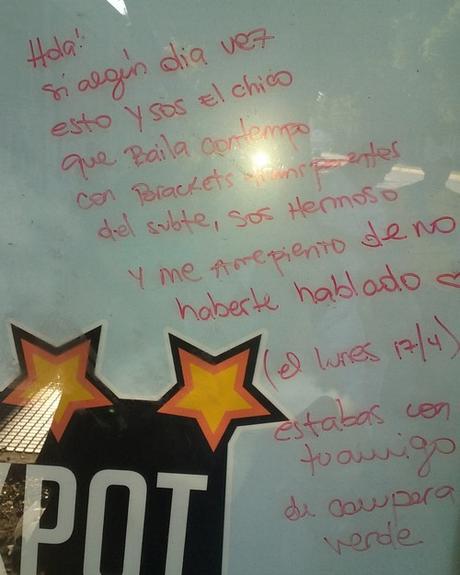 Hola!
si algún dia vez
esto y sos El chico
que Baila contempo
con Brackets transparentes
del subte, sos Hermoso
y me arrepiento de no
haberte hablado ♡
(el lunes 17/4)
estabas con
tu amigo
de campera
verde
POT